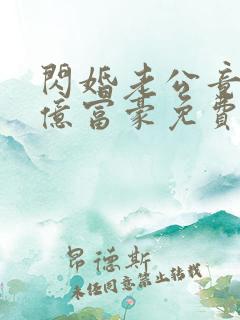 閃婚老公竟
億富豪免費
昂德斯
未經同意禁止轉載